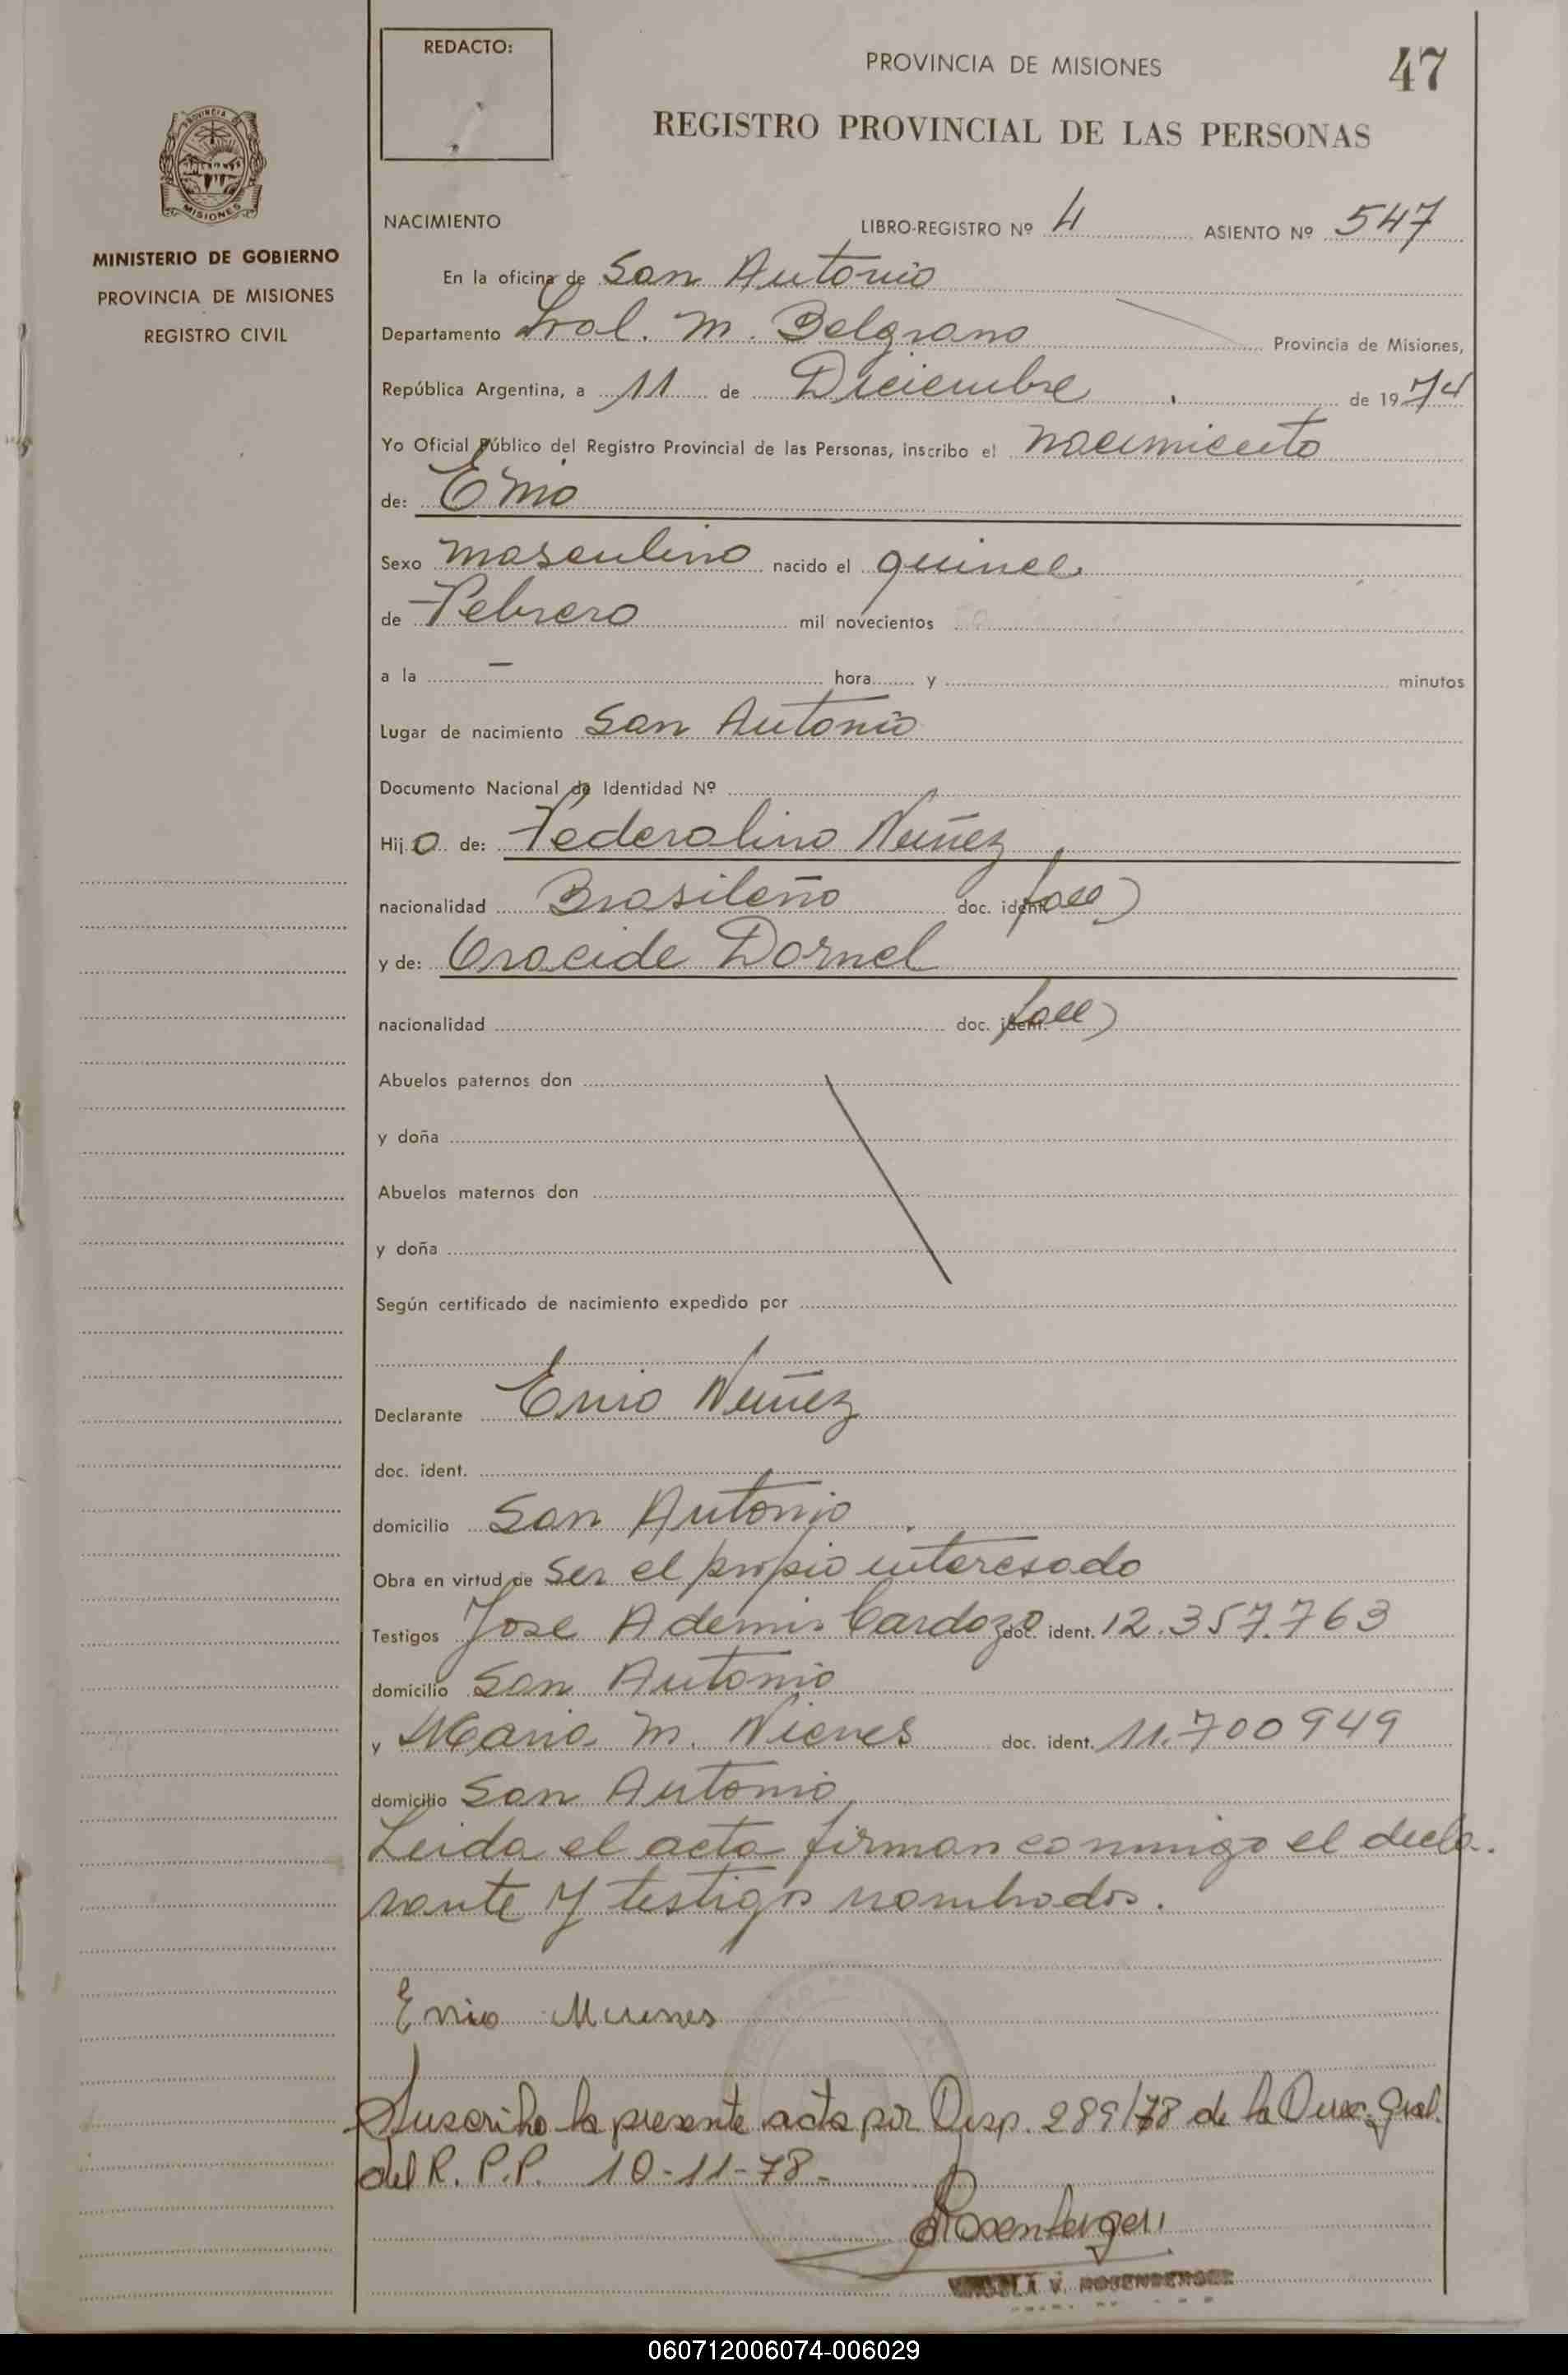 REDACTO:
PROVINCIA DE MISIONES
47
REGISTRO PROVINCIAL DE LAS PERSONAS
MISIONES
MINISTERIO DE GOBIERNO
PROVINCIA DE MISIONES
REGISTRO CIVIL
NACIMIENTO LIBRO-REGISTRO Nº 4 ASIENTO Nº 547
En la oficina de San Antonio
Departamento Gral. M. Belgrano Provincia de Misiones,
República Argentina, a 11 de Diciembre de 1974
Yo Oficial Público del Registro Provincial de las Personas, inscribo el nacimiento
de: Enio
Sexo masculino nacido el quince
de Febrero mil novecientos
a la — hora y minutos
Lugar de nacimiento San Antonio
Documento Nacional de Identidad Nº
Hijo de: Federalino Nuñez
nacionalidad Brasileño doc. ident. fall)
y de: Oracide Dornel
nacionalidad doc. ident. fall)
Abuelos paternos don
y doña
Abuelos maternos don
y doña
Según certificado de nacimiento expedido por
Declarante Enio Nuñez
doc. ident.
domicilio San Antonio
Obra en virtud de ser el propio interesado
Testigos Jose Ademir Cardozo doc. ident. 12.357.763
domicilio San Antonio
y Maria M. Nieves doc. ident. 11.700949
domicilio San Antonio
Leida el acta firman conmigo el decla-
rante y testigos nombrados.
Enio Nunes
Suscribo la presente acta por Disp. 289/78 de la Direc. Gral.
del R. P. P. 10-11-78-
Rosenberger
V. ROSENBERGER
060712006074-006029